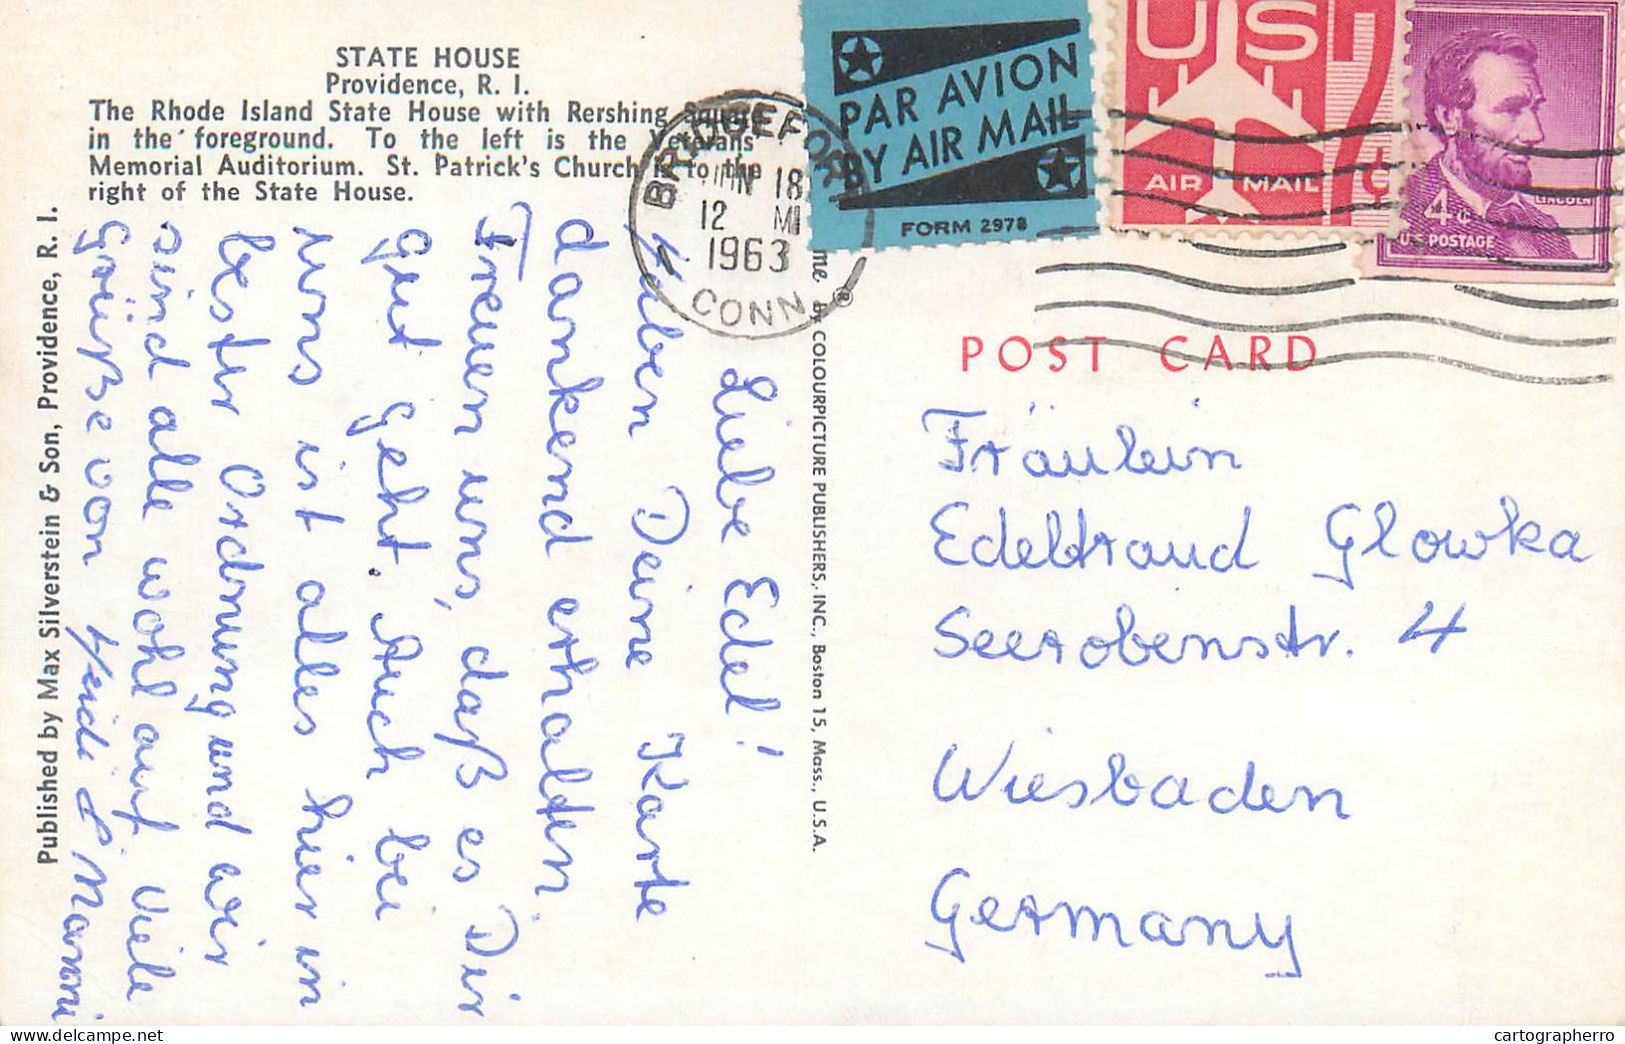 STATE HOUSE
Providence, R. I.
The Rhode Island State House with Rershing Square
in the foreground. To the left is the Veterans
Memorial Auditorium. St. Patrick's Church is to the
right of the State House.
Published by Max Silverstein & Son, Providence, R. I.
Liebe Edel!
Haben Deine Karte
dankend erhalten.
Freuen uns, daß es Dir
gut geht. Auch bei
uns ist alles hier in
bester Ordnung und wir
sind alle wohl auf. Viele
Grüße von Heidi &
BRIDGEPORT
JUN 18
12 M
1963
CONN
PAR AVION
BY AIR MAIL
FORM 2978
US 7c
AIR MAIL
4c LINCOLN
U.S. POSTAGE
me by COLOURPICTURE PUBLISHERS, INC., Boston 15, Mass., U.S.A.
®
POST CARD
Fräulein
Edeltraud Glowka
Seerobenstr. 4
Wiesbaden
Germany
cartographerro